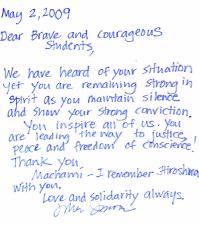 May 2, 2009
Dear Brave and Courageous
Students,
We have heard of your situation
yet you are remaining strong in
spirit as you maintain silence
and show your strong conviction.
You inspire all of us. You
are leading the way to justice,
peace and freedom of conscience!
Thank you.
Machami - I remember Hiroshima
with you.
Love and solidarity always.